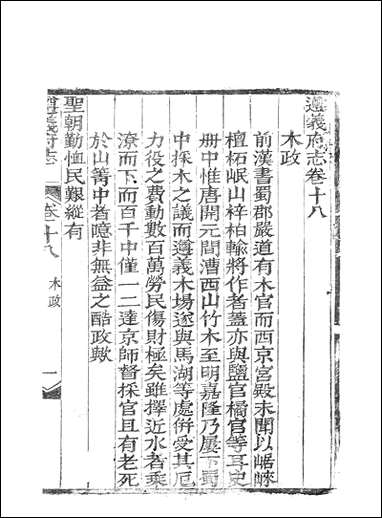 遵義府志卷十八
木政
前漢書蜀郡嚴道有木官而西京宮殿未聞以崌崍
檀柘岷山梓柏輸將作者蓋亦與鹽官橘官等耳史
冊中惟唐開元間漕西山竹木至明嘉隆乃屢下蜀
中採木之議而遵義木場遂與馬湖等處併受其厄
力役之費動數百萬勞民傷財極矣雖擇近水者乘
潦而下而百千中僅一二達京師督採官且有老死
於山箐中者噫非無益之酷政歟
聖朝勤恤民艱縱有
遵義府志
卷十八
木政
一